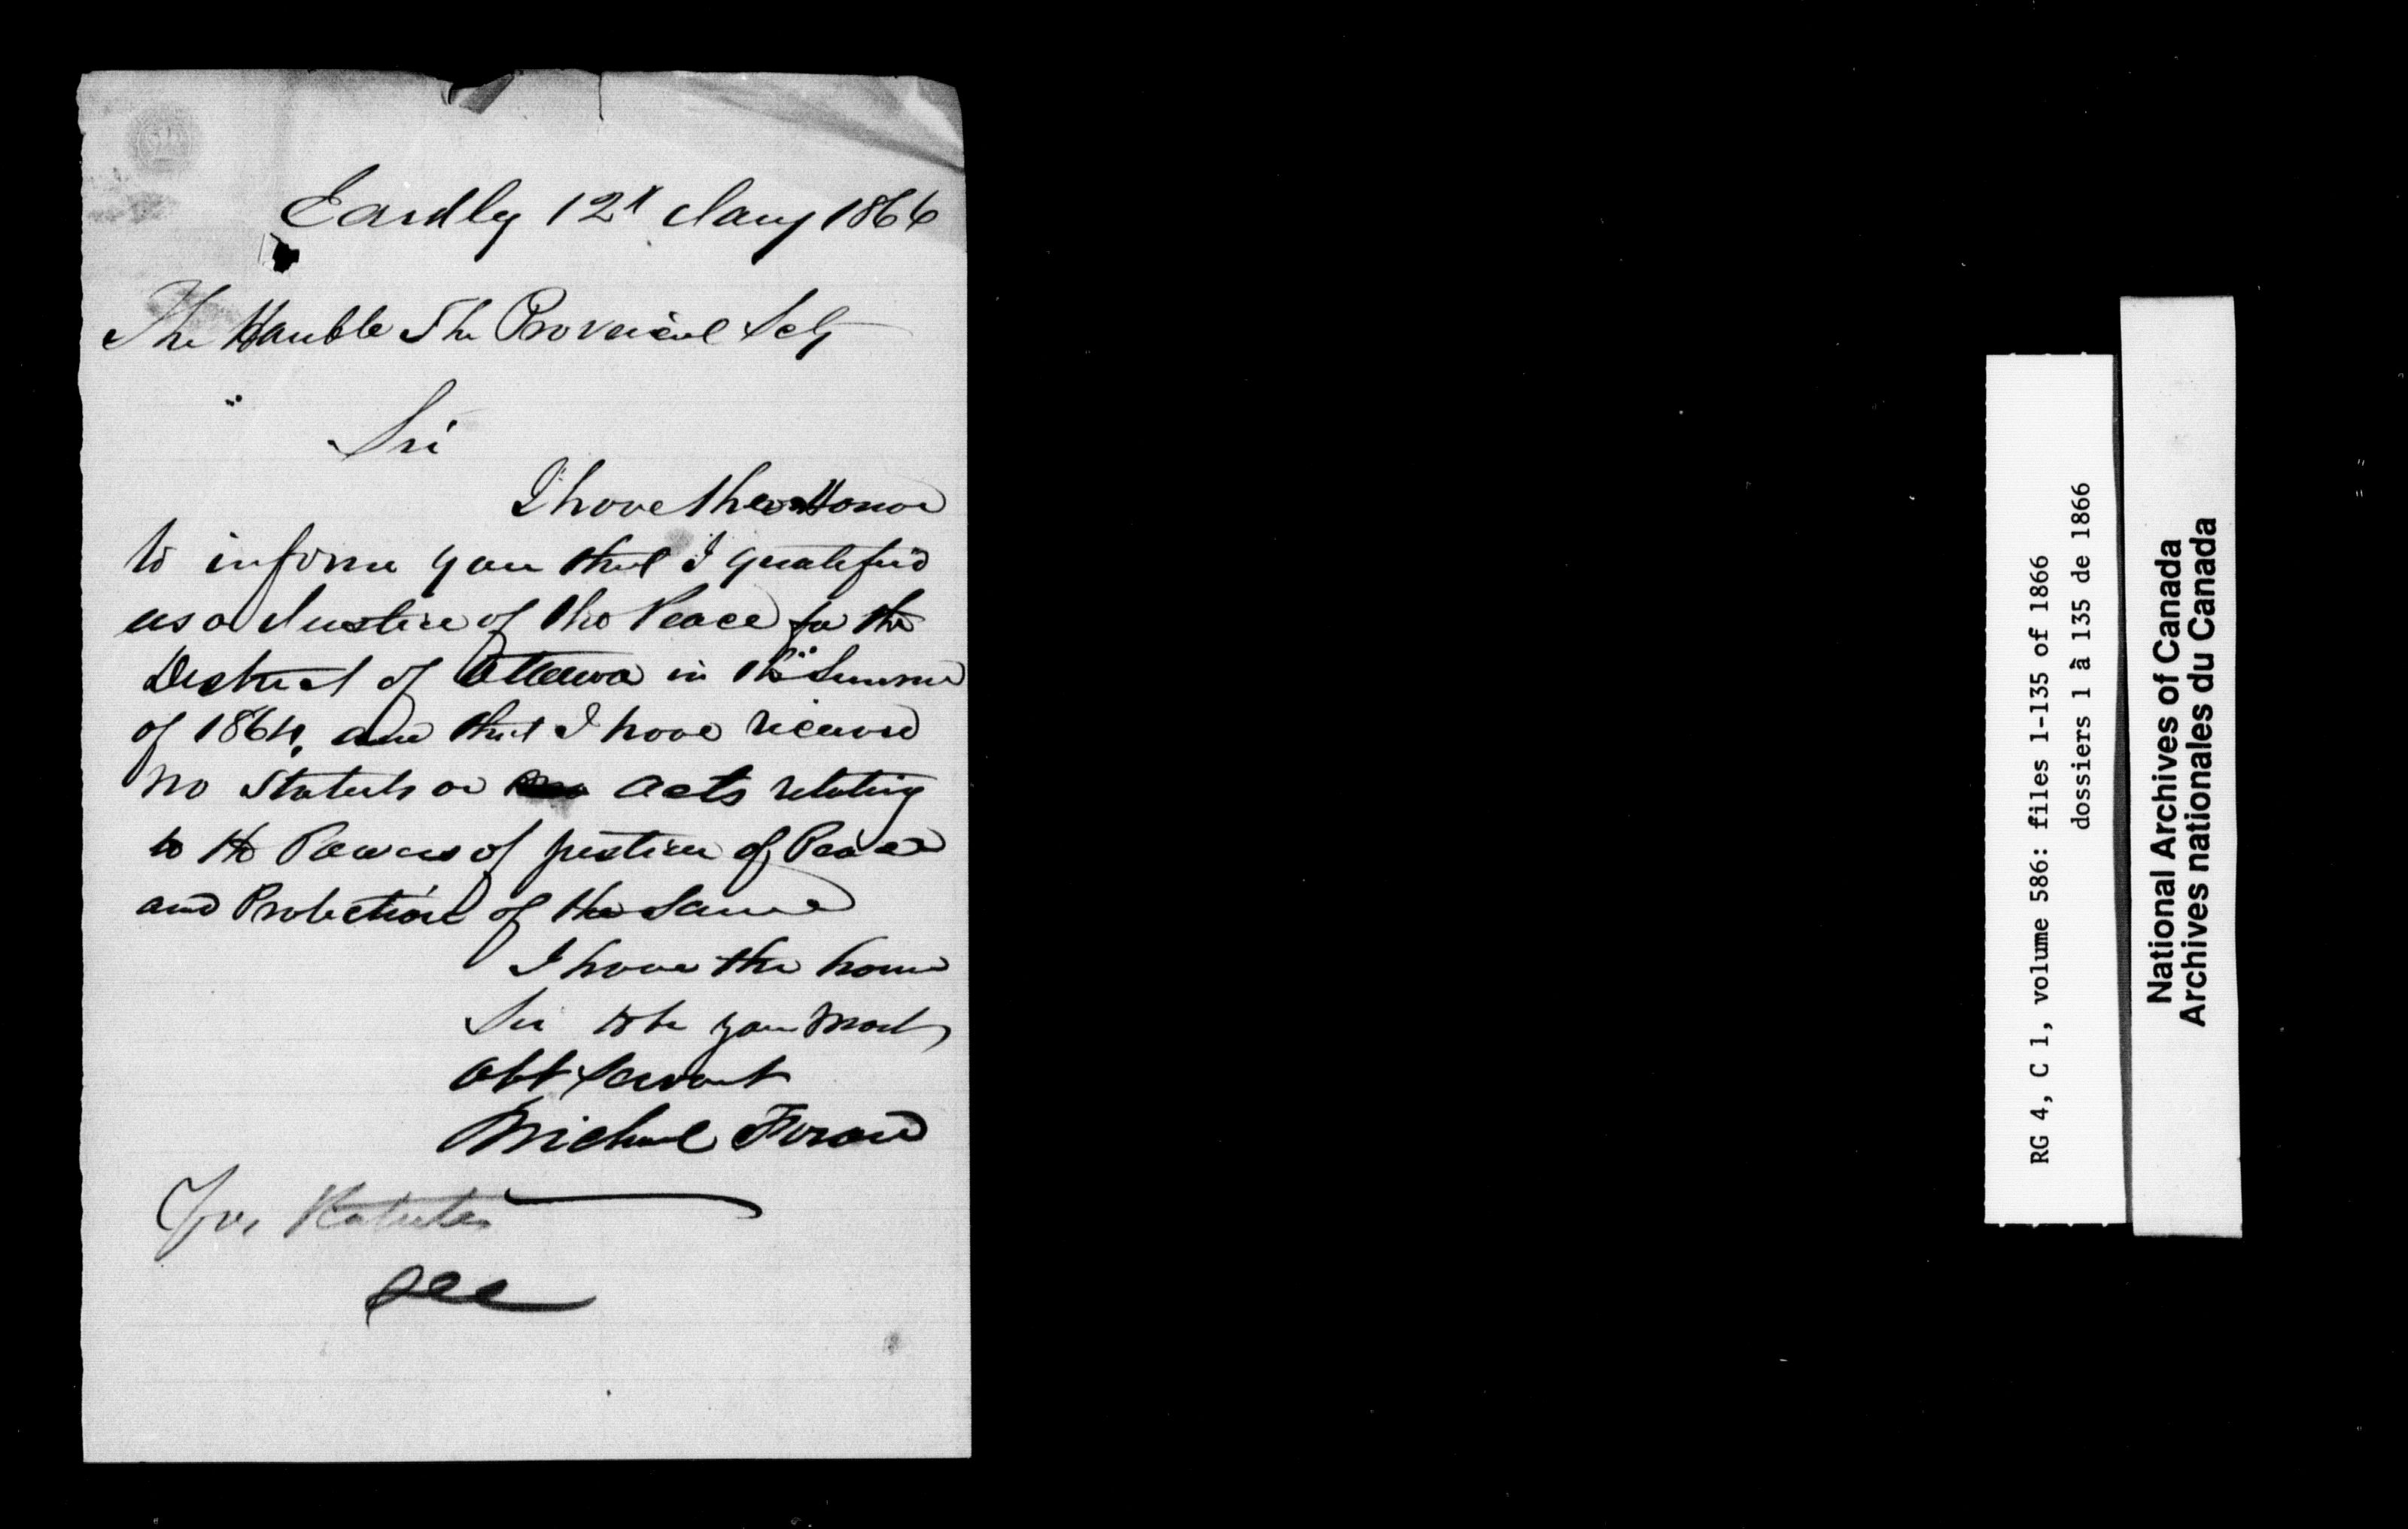 Eardly 12th Jany 1866
The Honble The Provincial Secy
Sir
I have the Honor
to inform you that I qualified
as a Justice of the Peace for the
District of Ottawa in the Summer
of 1864, and that I have received
no Statuts or acts relating
to the Powers of Justice of Peace
and Protection of the Same
I have the honor
Sir to be your most
Obt Servant
Michael Foran
For Statutes
RG 4, C 1, volume 586: files 1-135 of 1866
dossiers 1 à 135 de 1866
National Archives of Canada
Archives nationales du Canada